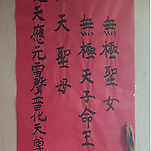 無極聖女
無極天子命王
天聖母
天應元雷聲普化天尊